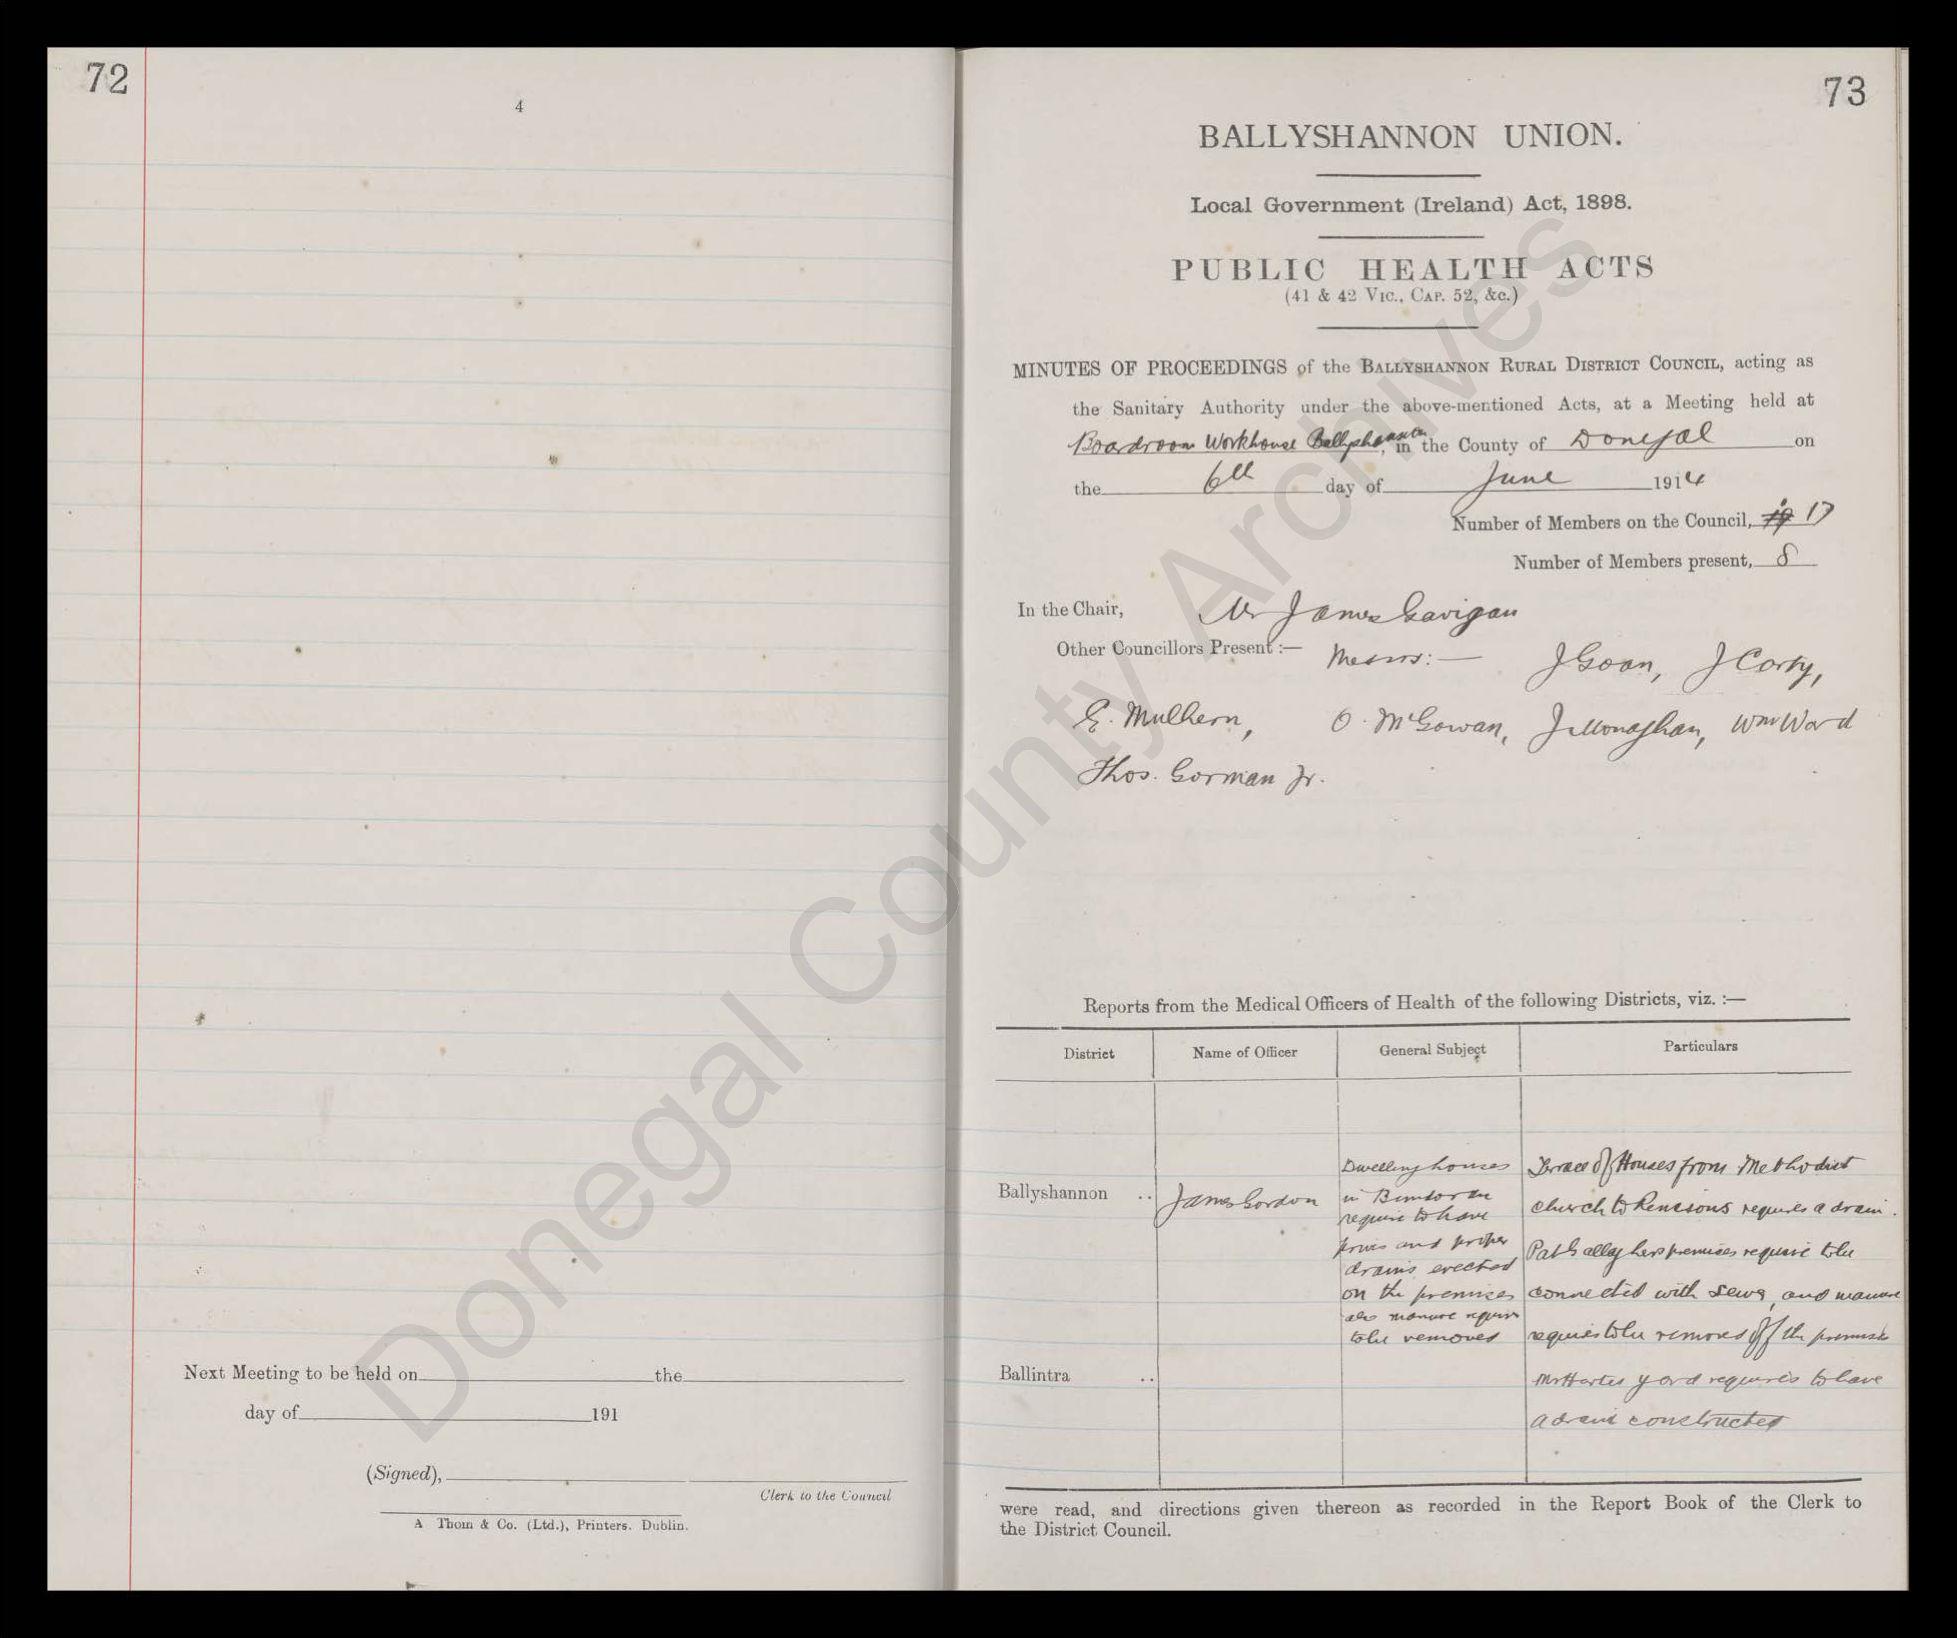 72
4
Next Meeting to be held on the
day of 191
(Signed),
Clerk to the Council
A Thom & Co. (Ltd.), Printers. Dublin.
73
BALLYSHANNON UNION.
Local Government (Ireland) Act, 1898.
PUBLIC HEALTH ACTS
(41 & 42 Vic., Cap. 52, &c.)
MINUTES OF PROCEEDINGS of the Ballyshannon Rural District Council, acting as
the Sanitary Authority under the above-mentioned Acts, at a Meeting held at
Boardroom Workhouse Ballyshannon, in the County of Donegal on
the 6th day of June 1914
Number of Members on the Council, 17
Number of Members present, 8
In the Chair, Mr James Gavigan
Other Councillors Present :— Messrs:— J Goan, J Corty,
E. Mulhern, O. McGowan, J Monaghan, Wm Ward
Thos. Gorman Jr.
Reports from the Medical Officers of Health of the following Districts, viz. :—
District Name of Officer General Subject Particulars
Ballyshannon .. James Gordon
Dwelling houses
in Bundoran
require to have
and proper
drains erected
on the premises
also manure require
to be removed
Terrace of Houses from Methodist
church to requires a drain.
Pat Gallaghers premises require to be
connected with sewer, and manure
requires to be removed off the premises
Mr yard requires to have
a drain constructed
Ballintra ..
were read, and directions given thereon as recorded in the Report Book of the Clerk to
the District Council.
Donegal County Archives